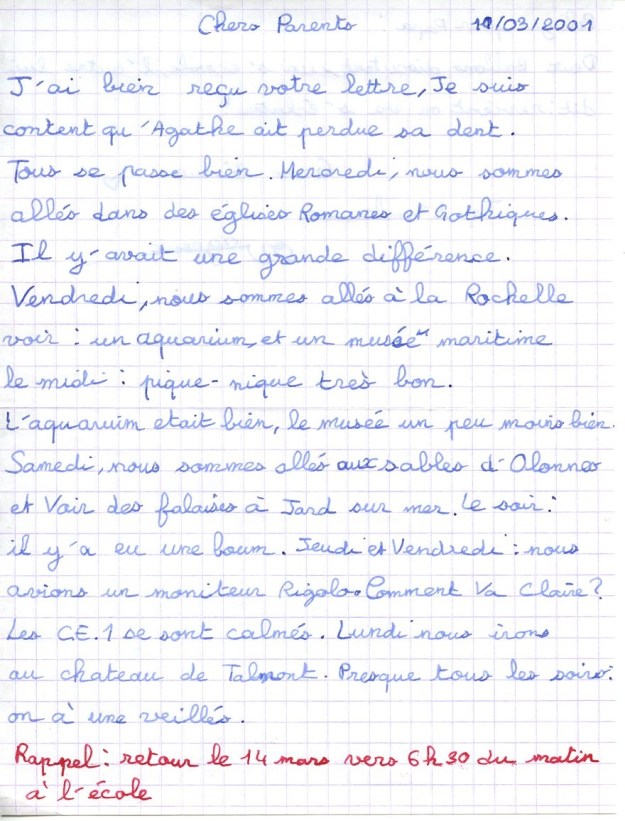 Chers Parents 11/03/2001
J'ai bien reçu votre lettre, Je suis
content qu'Agathe ait perdue sa dent.
Tous se passe bien. Mercredi, nous sommes
allés dans des églises Romanes et Gothiques.
Il y'avait une grande différence.
Vendredi, nous sommes allés à la Rochelle
voir : un aquarium, et un musée maritime
le midi : pique-nique très bon.
L'aquaruim etait bien, le museé un peu moins bien.
Samedi, nous sommes allés aux sables d'Olonnes
et Voir des falaises à Jard sur mer. Le soir :
il y'a eu une boum. Jeudi et Vendredi : nous
avions un moniteur Rigolo. Comment Va Claire ?
Les C.E.1 se sont calmés. Lundi nous irons
au chateau de Talmont. Presque tous les soirs :
on à une veillés.
Rappel : retour le 14 mars vers 6h30 du matin
à l'école